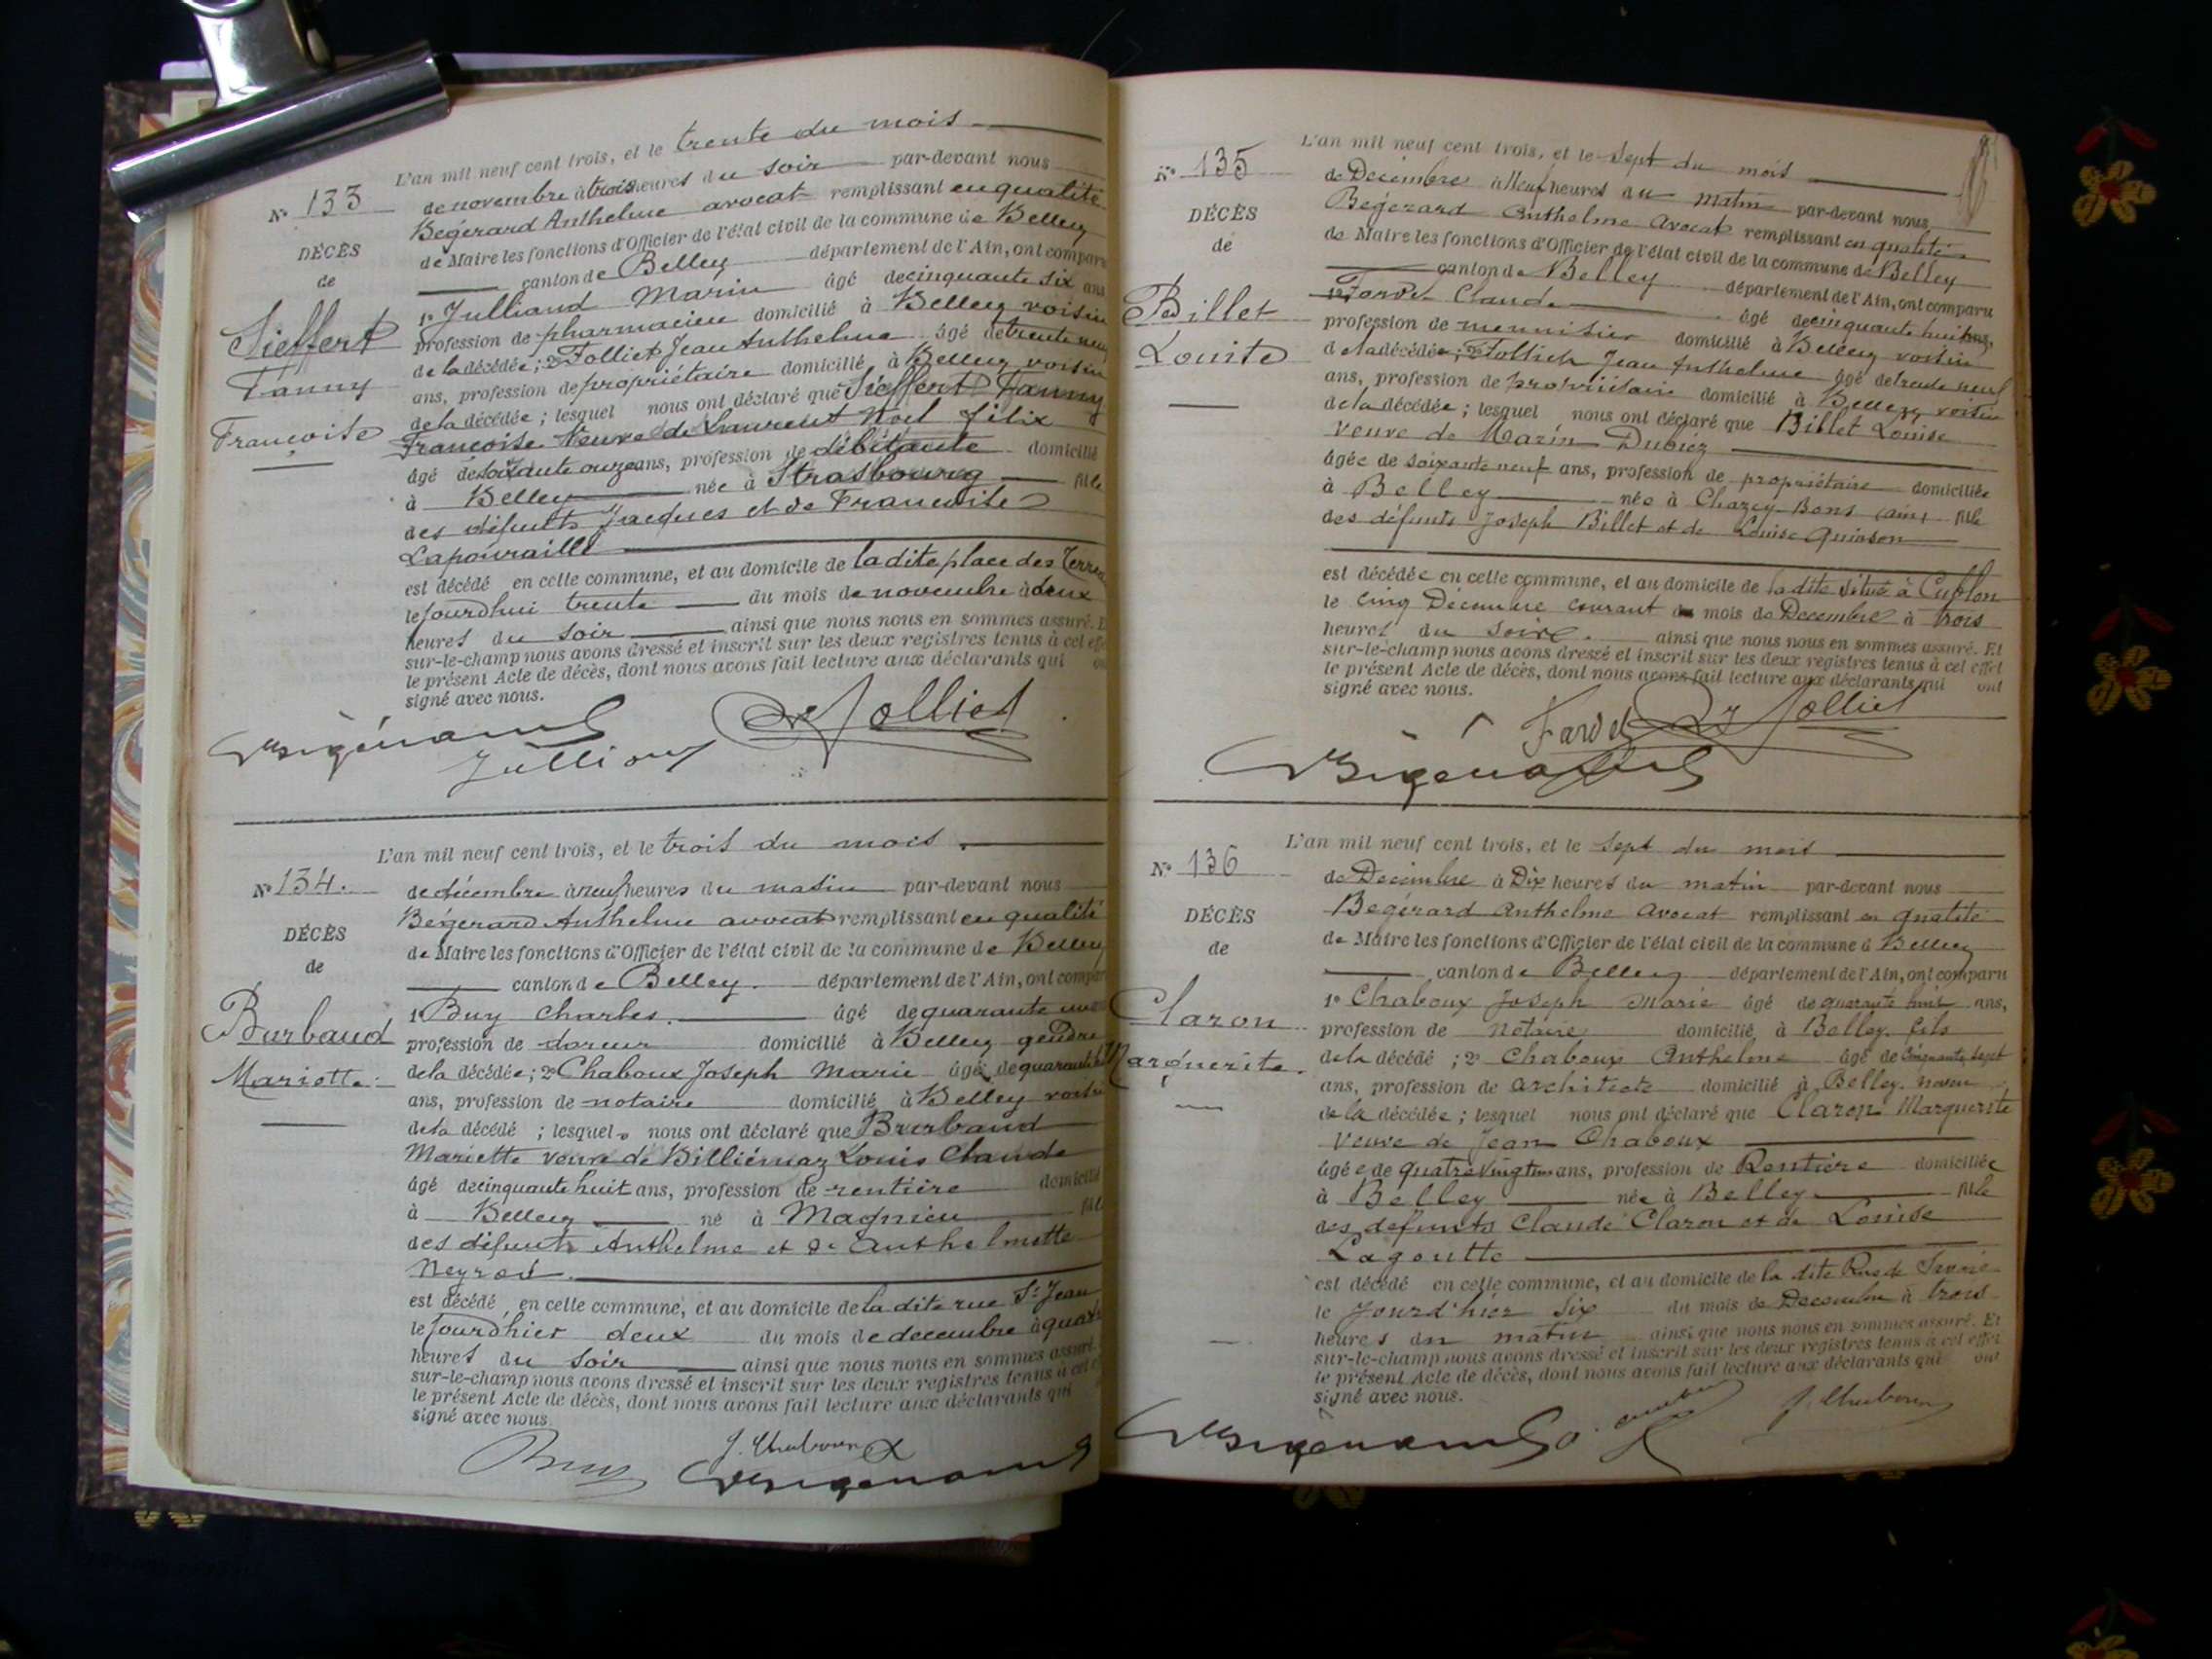 L'an mil neuf cent trois, et le trente du mois
N° 133
de novembre à trois heures du soir par-devant nous
Bégérard Anthelme avocat remplissant en qualité
DÉCÈS
de Maire les fonctions d'Officier de l'état civil de la commune de Belley
de
canton de Belley département de l'Ain, ont comparu
1° Julliand Marin âgé de cinquante six ans
Sieffert
profession de pharmacien domicilié à Belley voisin
de la décédée; 2° Folliet Jean Anthelme âgé de trente neuf
Fanny
ans, profession de propriétaire domicilié à Belley voisin
de la décédée; lesquel nous ont déclaré que Sieffert Fanny
Françoise
Françoise veuve de Laurent Noel Félix
âgé de soixante onze ans, profession de débitante domicilié
à Belley née à Strasbourg fille
des défunts Jacques et de Françoise
Lapouraille
est décédé en cette commune, et au domicile de la dite place des
le jourdhui trente du mois de novembre à deux
heures du soir ainsi que nous nous en sommes assuré. Et
sur-le-champ nous avons dressé et inscrit sur les deux registres tenus à cet effet
le présent Acte de décès, dont nous avons fait lecture aux déclarants qui
signé avec nous.
Bégérard Julliand Folliet
L'an mil neuf cent trois, et le trois du mois
N° 134.
de décembre à neuf heures du matin par-devant nous
Bégerard Anthelme avocat remplissant en qualité
DÉCÈS
de Maire les fonctions d'Officier de l'état civil de la commune de Belley
de
canton de Belley. département de l'Ain, ont comparu
1° Buy Charles. âgé de quarante
Burbaud
profession de doreur domicilié à Belley gendre
Mariette
de la décédée; 2° Chaboux Joseph Marie âgé de quarante
ans, profession de notaire domicilié à Belley voisin
de la décédé; lesquels nous ont déclaré que Burbaud
Mariette veuve de Billiémaz Louis Claude
âgé de cinquante huit ans, profession de rentière domicilié
à Belley né à Magnieu fille
des défunts Anthelme et de Anthelmette
Neyrod.
est décédé en cette commune, et au domicile de la dite rue St Jean
le jourdhier deux du mois de décembre à quatre
heures du soir ainsi que nous nous en sommes assuré.
sur-le-champ nous avons dressé et inscrit sur les deux registres tenus à cet
le présent Acte de décès, dont nous avons fait lecture aux déclarants qui
signé avec nous
Buy J. Chaboux Bégérard
L'an mil neuf cent trois, et le sept du mois
N° 135
de Decembre à Neuf heures du matin par-devant nous
Begerard Anthelme Avocat remplissant en qualité
DÉCÈS
de Maire les fonctions d'Officier de l'état civil de la commune de Belley
de
canton de Belley département de l'Ain, ont comparu
1° Fardel Claude âgé de cinquante huit ans,
Billet
profession de menuisier domicilié à Belley voisin
Louise
de la décédée; 2° Folliet Jean Anthelme âgé de trente neuf
ans, profession de propriétaire domicilié à Belley voisin
de la décédée; lesquel nous ont déclaré que Billet Louise
veuve de Marin Dubiez
âgée de soixante neuf ans, profession de propriétaire domiciliée
à Belley née à Chazey-Bons (Ain) fille
des défunts Joseph Billet et de Louise Quinson
est décédée en cette commune, et au domicile de la dite située à
le cinq Décembre courant du mois de Decembre à trois
heures du soir. ainsi que nous nous en sommes assuré. Et
sur-le-champ nous avons dressé et inscrit sur les deux registres tenus à cet effet
le présent Acte de décès, dont nous avons fait lecture aux déclarants qui ont
signé avec nous.
Fardel Folliet
Bégérard
L'an mil neuf cent trois, et le sept du mois
N° 136
de Decembre à Dix heures du matin par-devant nous
Begérard Anthelme Avocat remplissant en qualité
DÉCÈS
de Maire les fonctions d'Officier de l'état civil de la commune d Belley
de
canton de Belley département de l'Ain, ont comparu
1° Chaboux Joseph Marie âgé de quarante huit ans,
Claron
profession de Notaire domicilié à Belley. fils
Marguerite.
de la décédé; 2° Chaboux Anthelme âgé de cinquante sept
ans, profession de architecte domicilié à Belley. neveu
de la décédée; lesquel nous ont déclaré que Claron Marguerite
veuve de Jean Chaboux
âgée de quatre vingt ans, profession de Rentière domiciliée
à Belley née à Belley fille
des défunts Claude Claron et de Louise
Lagoutte
est décédé en cette commune, et au domicile de la dite Rue de
le jourd'hier six du mois de Decembre à trois
heures du matin ainsi que nous nous en sommes assuré. Et
sur-le-champ nous avons dressé et inscrit sur les deux registres tenus à cet effet
le présent Acte de décès, dont nous avons fait lecture aux déclarants qui ont
signé avec nous.
Bégérard J. Chaboux